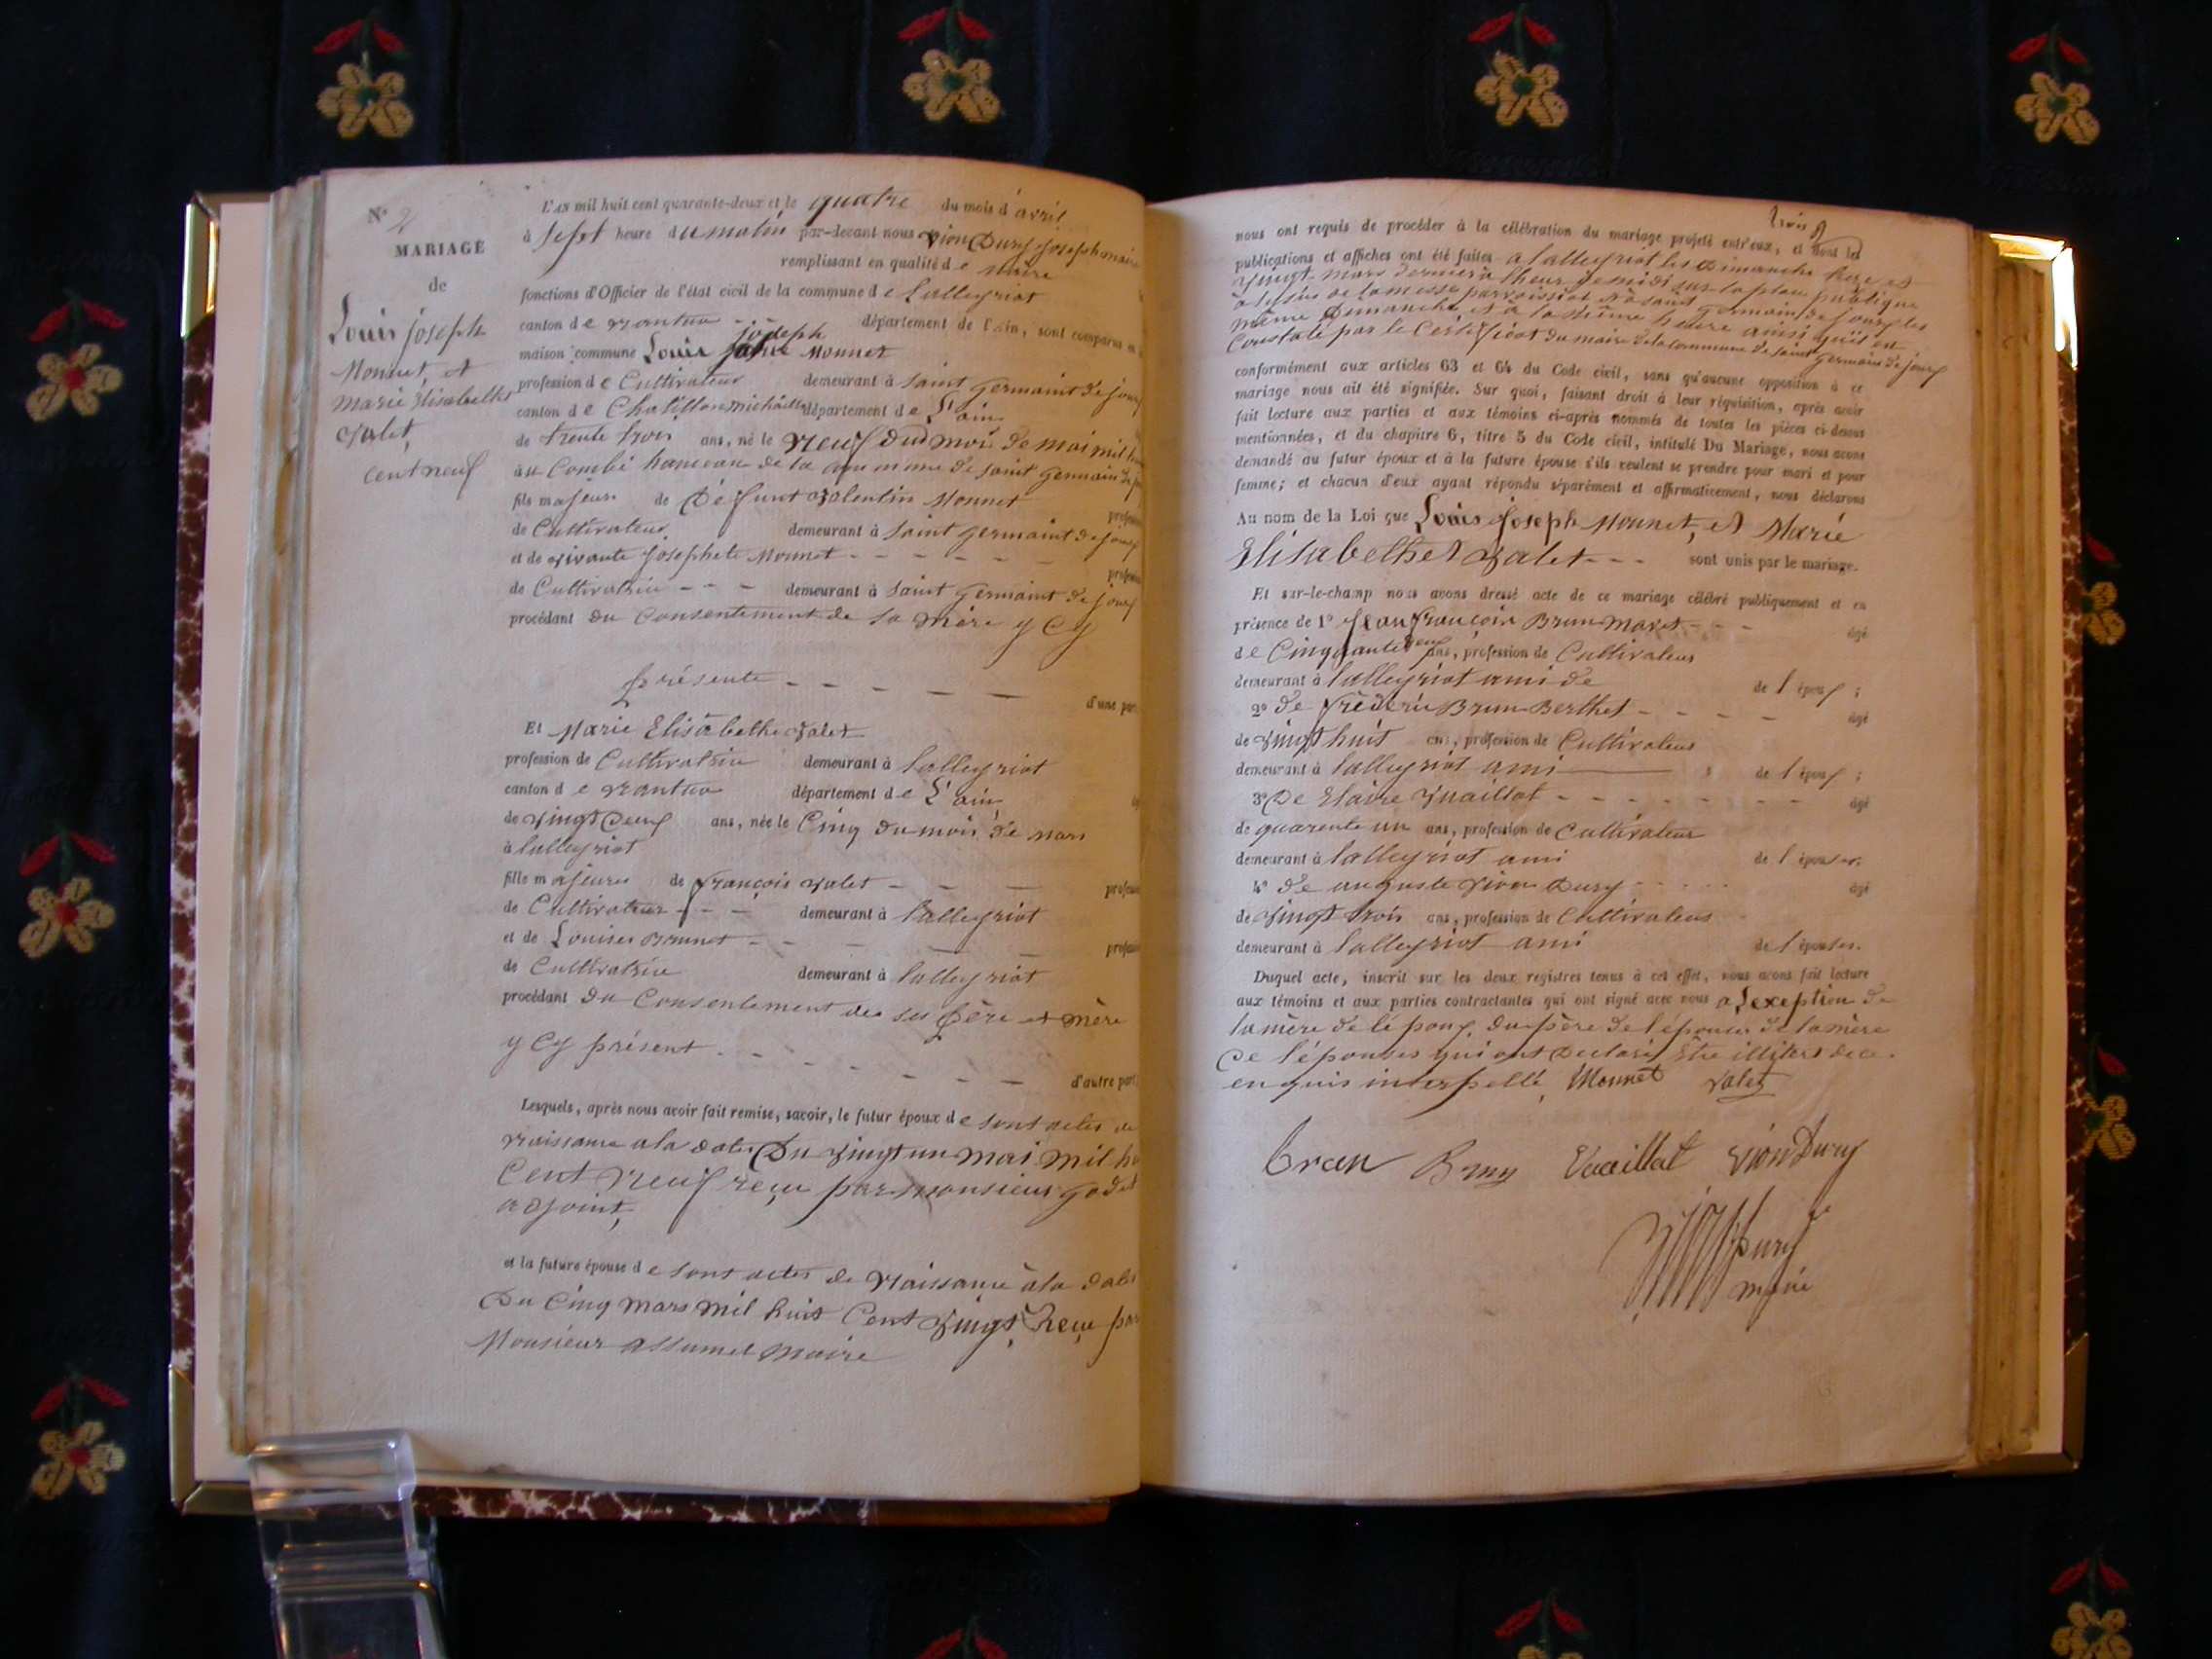 N° 2
MARIAGE
de
Louis joseph
Monnet, et
marie Elisabethe
Valet,
cent neuf
L'AN mil huit cent quarante-deux et le quatre du mois d'avril
à sept heure du matin par-devant nous Vion Dury joseph maire
remplissant en qualité de maire
fonctions d'Officier de l'état civil de la commune de Lalleyriat
canton de nantua - - département de l'Ain, sont comparus
joseph
maison commune Louis Monnet
profession de Cultivateur demeurant à saint germaint de joux
canton de Chatillon michaille département de L'ain
de trente trois ans, né le neuf dud mois de mai mil
au Combé hameau de la commune de saint germain de
fils majeur de Défunt Valentin Monnet
de Cultivateur demeurant à saint germaint de joux
et de vivante josephete Monnet - - - - - -
de Cultivatrice - - - demeurant à saint germaint de joux
procédant du Consentement de sa mère y Cy
présente - - - - - d'une part
Et Marie Elisabethe Valet
profession de Cultivatrice demeurant à lalleyriat
canton de nantua département de L'ain
de vingt Deux ans, née le Cinq du mois de mars
à lalleyriat
fille majeure de françois valet - - -
de Cultivateur - - - demeurant à lalleyriat
et de Louise Brunet - - - - -
de Cultivatrice demeurant à lalleyriat
procédant du Consentement de ses père et mère
y Cy présent - - - - - - - d'autre part
Lesquels, après nous avoir fait remise, savoir, le futur époux de sont actes de
naissance a la date Du vingt un mai mil
Cent neuf reçu par monsieur
adjoint,
et la future épouse de sont actes de naissance à la date
Du Cinq mars mil huit Cent vingt, Reçu par
Monsieur assumel maire
trois
nous ont requis de procéder à la célébration du mariage projeté entr'eux, et dont les
publications et affiches ont été faites a lalleyriat les Dimanche treze et
vingt mars dernier à lheur de midi sur la place publique
à lysue de la messe parroissial saint germain de joux les
même Dimanche et à la même heure ainsi qu'il est
Constaté par le Certificat du maire de la commune de saint germain de joux
conformément aux articles 63 et 64 du Code civil, sans qu'aucune opposition à ce
mariage nous ait été signifiée. Sur quoi, faisant droit à leur réquisition, après avoir
fait lecture aux parties et aux témoins ci-après nommés de toutes les pièces ci-dessus
mentionnées, et du chapitre 6, titre 5 du Code civil, intitulé Du Mariage, nous avons
demandé au futur époux et à la future épouse s'ils veulent se prendre pour mari et pour
femme; et chacun d'eux ayant répondu séparément et affirmativement, nous déclarons
Au nom de la Loi que Louis joseph Monnet, et Marie
Elisabethe Valet - - - sont unis par le mariage.
Et sur-le-champ nous avons dressé acte de ce mariage célébré publiquement et en
présence de 1° jean françois Brun maret - - - âgé
de Cinquante ans, profession de Cultivateur
demeurant à lalleyriat ami de de l'époux;
2° de frederic Brun Berthet - - - - âgé
de vingt huit ans, profession de Cultivateur
demeurant à lalleyriat ami de l'époux;
3° De Vuaillat - - - - - - - âgé
de quarente un ans, profession de Cultivateur
demeurant à lalleyriat ami de l'épouse;
4° de auguste Vion Dury - - - - - âgé
de vingt trois ans, profession de Cultivateur
demeurant à lalleyriat ami de l'épouse.
Duquel acte, inscrit sur les deux registres tenus à cet effet, nous avons fait lecture
aux témoins et aux parties contractantes qui ont signé avec nous a Lexeption de
la mère de lépoux, du père de l'épouse de la mère
De l'épouse qui ont Declaré Etre illiteré de ce
enquis interpellé, Monnet Valet
Brun Vuaillat Vion Dury
Dury
maire